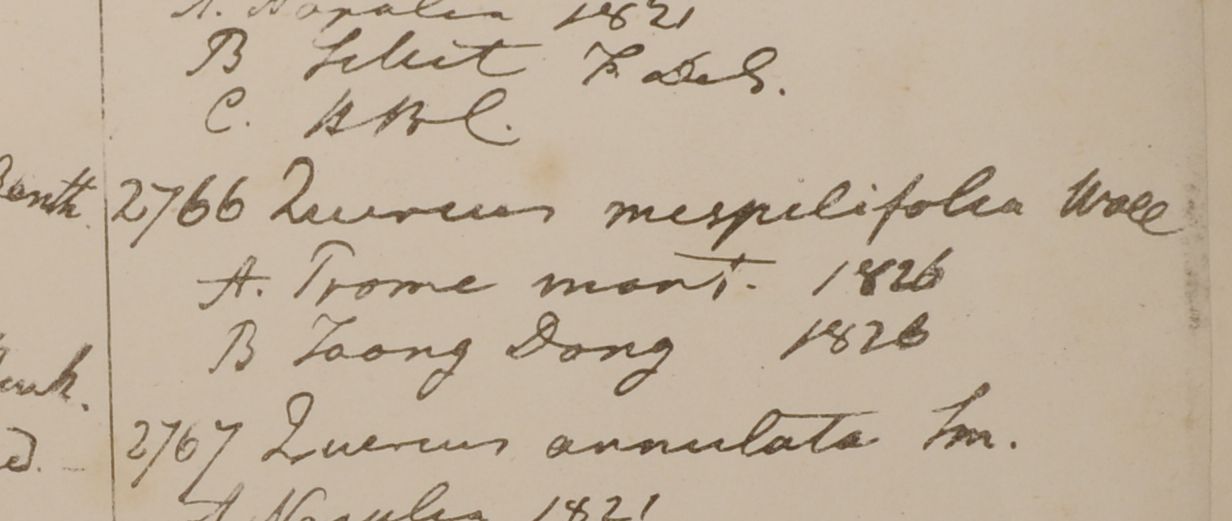 A. Napalia 1821
B Silhet F. DeS.
C. HBC.
2766 Quercus mespilifolia Wall
A. Prome mont. 1826
B Taong Dong 1826
2767 Quercus annulata Sm.
A Napalia 1821